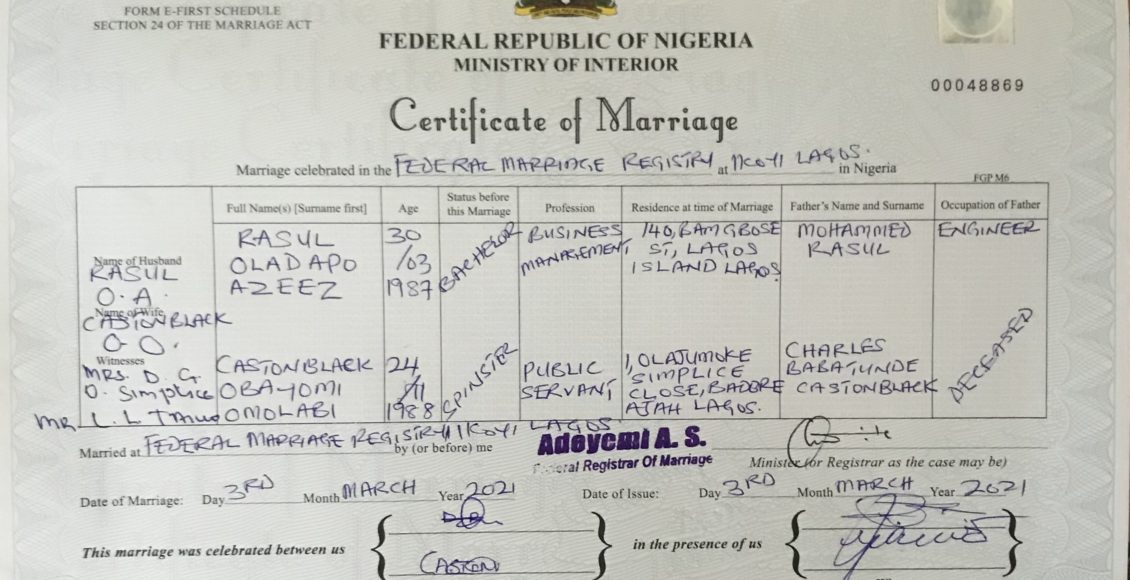 FORM E-FIRST SCHEDULE
SECTION 24 OF THE MARRIAGE ACT
FEDERAL REPUBLIC OF NIGERIA
MINISTRY OF INTERIOR
00048869
Certificate of Marriage
Marriage celebrated in the FEDERAL MARRIAGE REGISTRY at IKOYI LAGOS. in Nigeria
FGP M6
Full Name(s) [Surname first] Age Status before this Marriage Profession Residence at time of Marriage Father's Name and Surname Occupation of Father
Name of Husband
RASUL
O. A.
RASUL
OLADAPO
AZEEZ
30
/03
1987
BACHELOR
BUSINESS
MANAGEMENT
140, BAMGBOSE
ST, LAGOS
ISLAND LAGOS
MOHAMMED
RASUL
ENGINEER
Name of Wife
CASTONBLACK
O. O.
CASTONBLACK
OBAYOMI
OMOLABI
24
/11
1988
SPINSTER
PUBLIC
SERVANT
1, OLAJUMOKE
SIMPLICE
CLOSE, BADORE
AJAH LAGOS.
CHARLES
BABATUNDE
CASTONBLACK
DECEASED
Witnesses
MRS. D. G.
O. Simplice
MR L. L.
Married at FEDERAL MARRIAGE REGISTRY IKOYI LAGOS by (or before) me
Adeyemi A. S.
Federal Registrar Of Marriage
Minister (or Registrar as the case may be)
Date of Marriage: Day 3RD Month MARCH Year 2021 Date of Issue: Day 3RD Month MARCH Year 2021
This marriage was celebrated between us in the presence of us